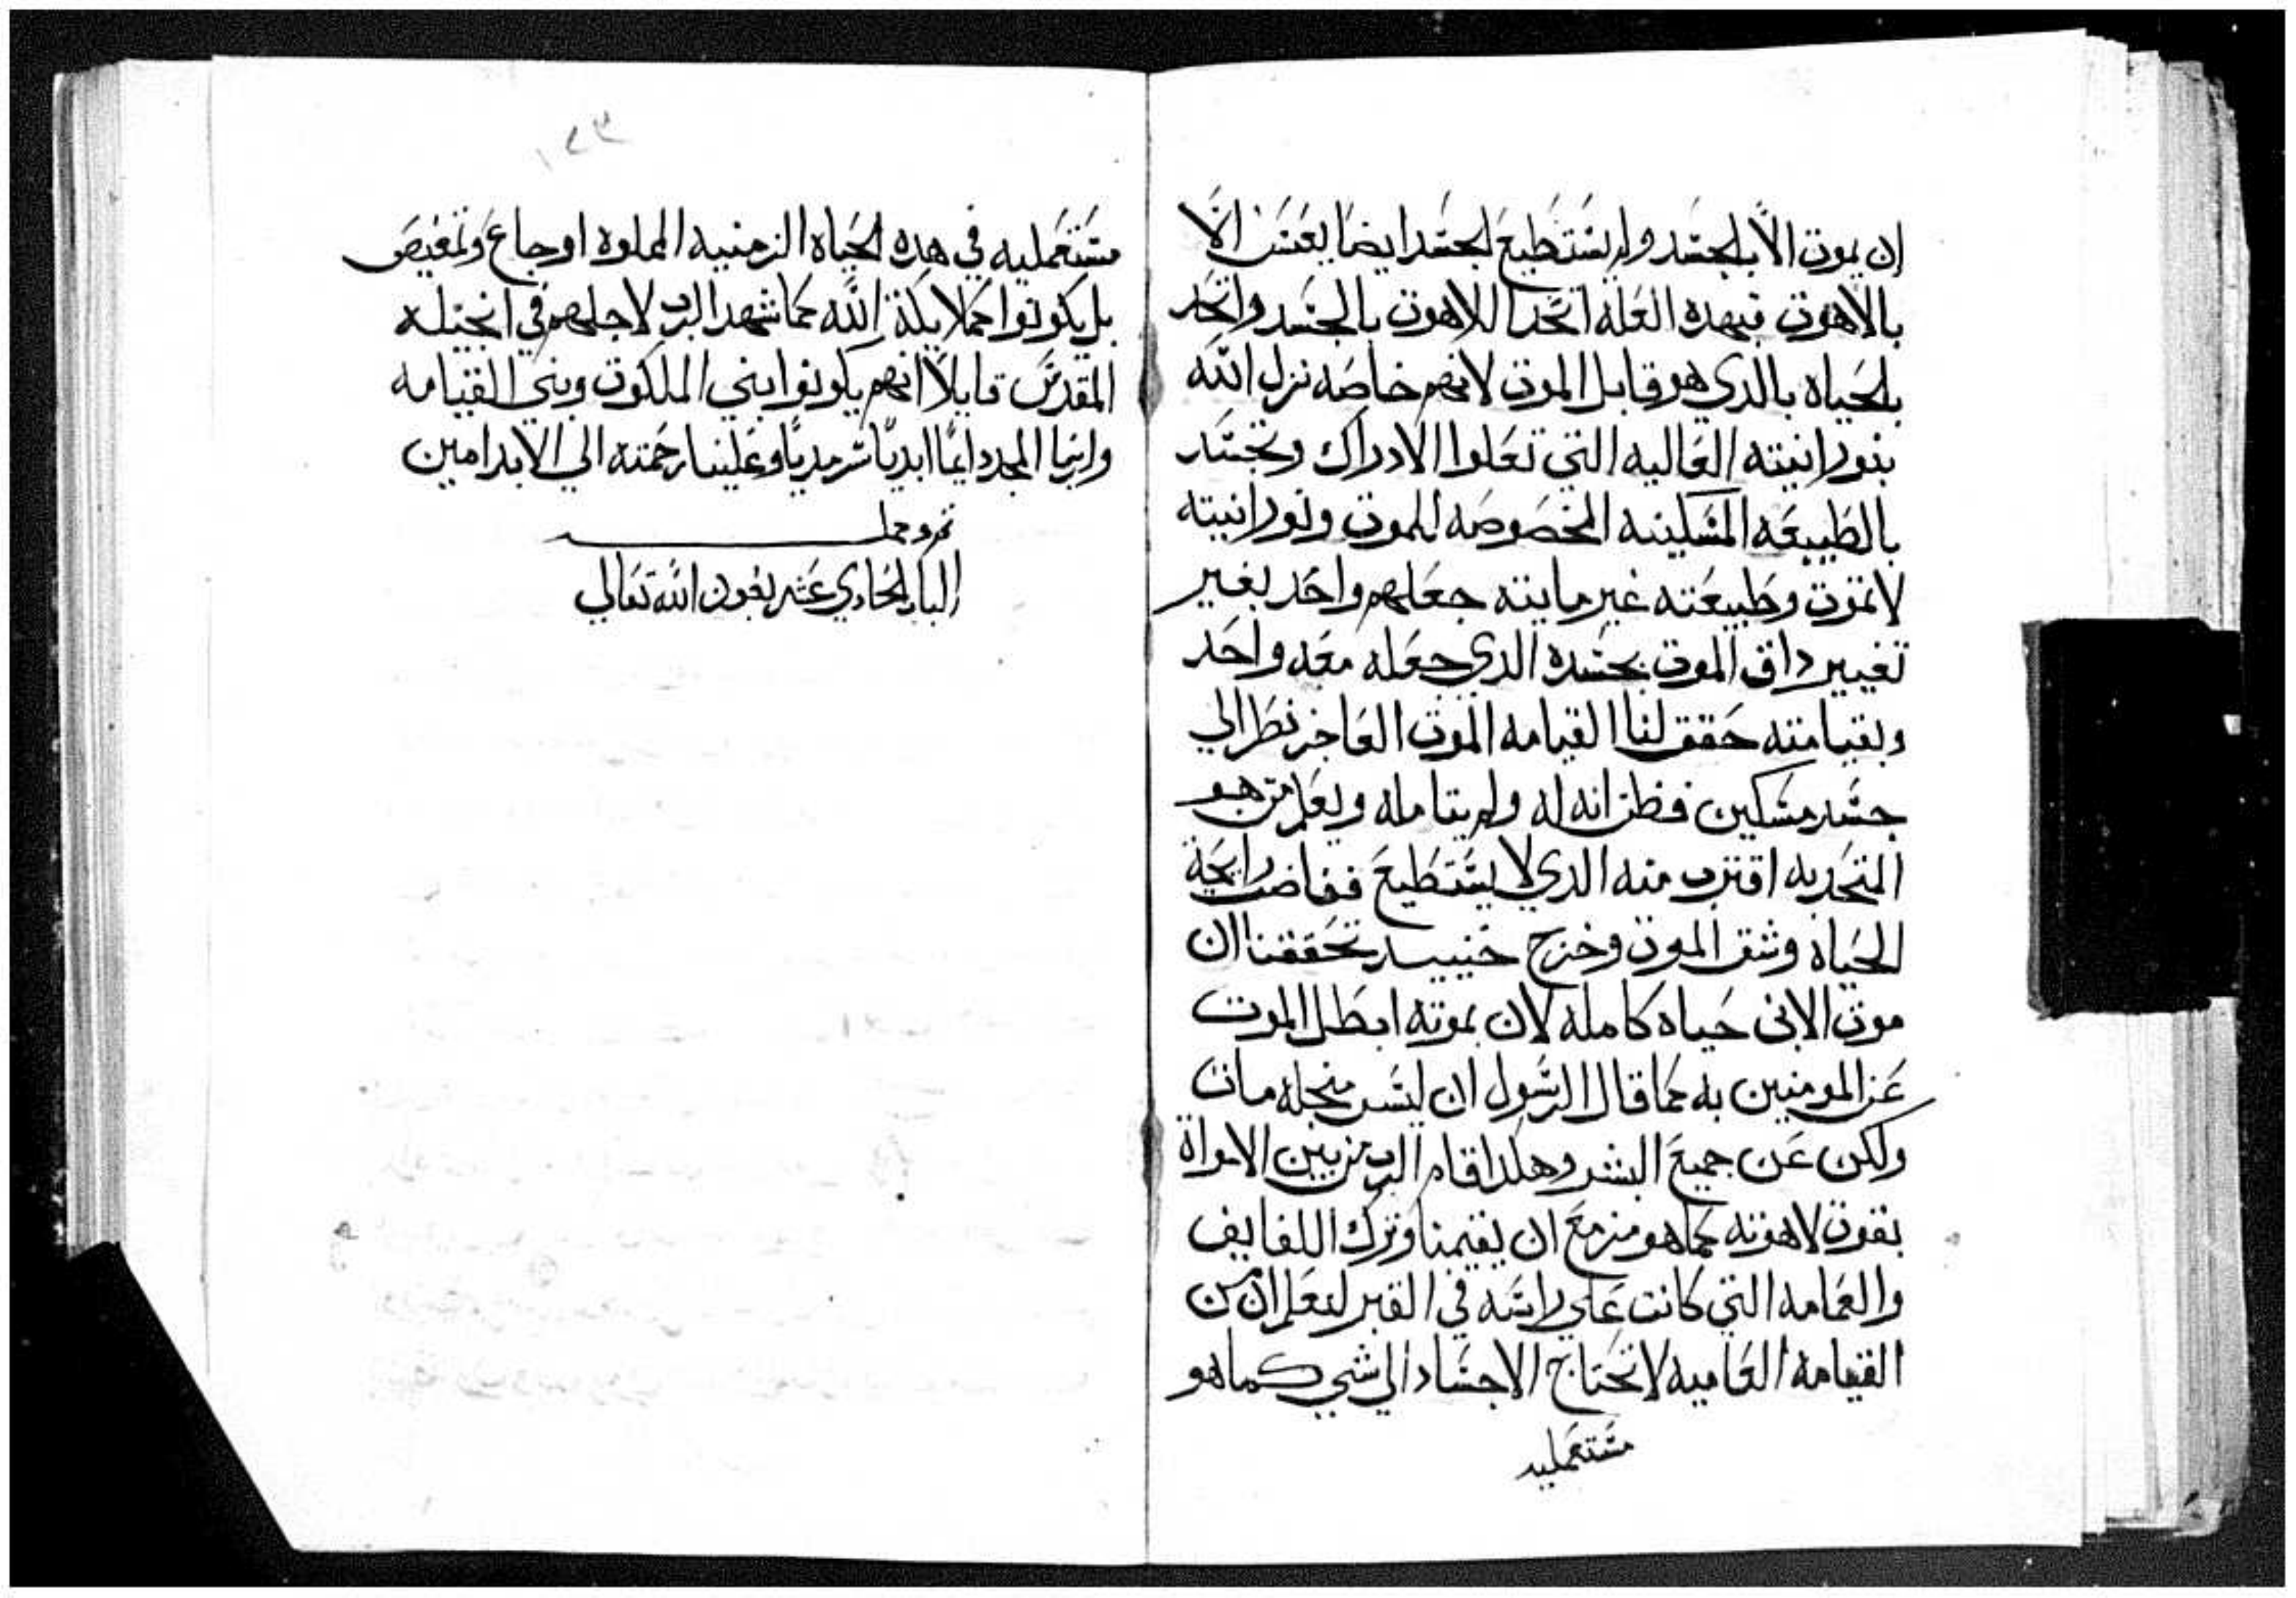 ان يموت الا بالجسد ولم يستطيع الجسد ايضا يعيش الا
بالاهوت فبهده العله اتحد اللاهوت بالجسد واتحد
بالحياه بالدي هو قابل الموت لانهم خاصه نزل الله
بنورانيته العاليه التي تعلوا الادراك وتجسد
بالطبيعه المسكينه المخصوصه للموت ونورانيته
لا تموت وطبيعته غير مايته جعلهم واحد بغير
تغيير داق الموت بجسده الدي جعله معه واحد
وبقيامته حقق لنا القيامه الموت العاجز نظر الي
جسد مسكين فظن انه له ولم يتامله ويعلم من هو
المتحد به اقترب منه الدي لا يستطيع ففاضت رايحة
الحياه وشق الموت وخرج حينيد تحققنا ان
موت الابن حياه كامله لان بموته ابطل الموت
عن المومنين به كما قال الرسول ان ليس منجله مات
ولكن عن جميع البشر وهكدا قام الرب من بين الامواة
بقوت لاهوته كما هو مزمع ان يقيمنا وترك اللفايف
والعمامه التي كانت علي راسه في القبر لنعلم ان من
القيامه العاميه لا تحتاج الاجساد الي شي كما هو
مستعمليه
مستعمليه في هده الحياه الزمنيه المملوه اوجاع وتمغيص
بل يكونوا كملايكة الله كما شهد الرب لاجلهم في انجيله
المقدس قايلا انهم يكونوا بني الملكوت وبني القيامه
ولربنا المجد دايما ابديا سرمديا وعلينا رحمته الي الابد امين
تم وكمل
الباب الحادي عشر بعون الله تعالي